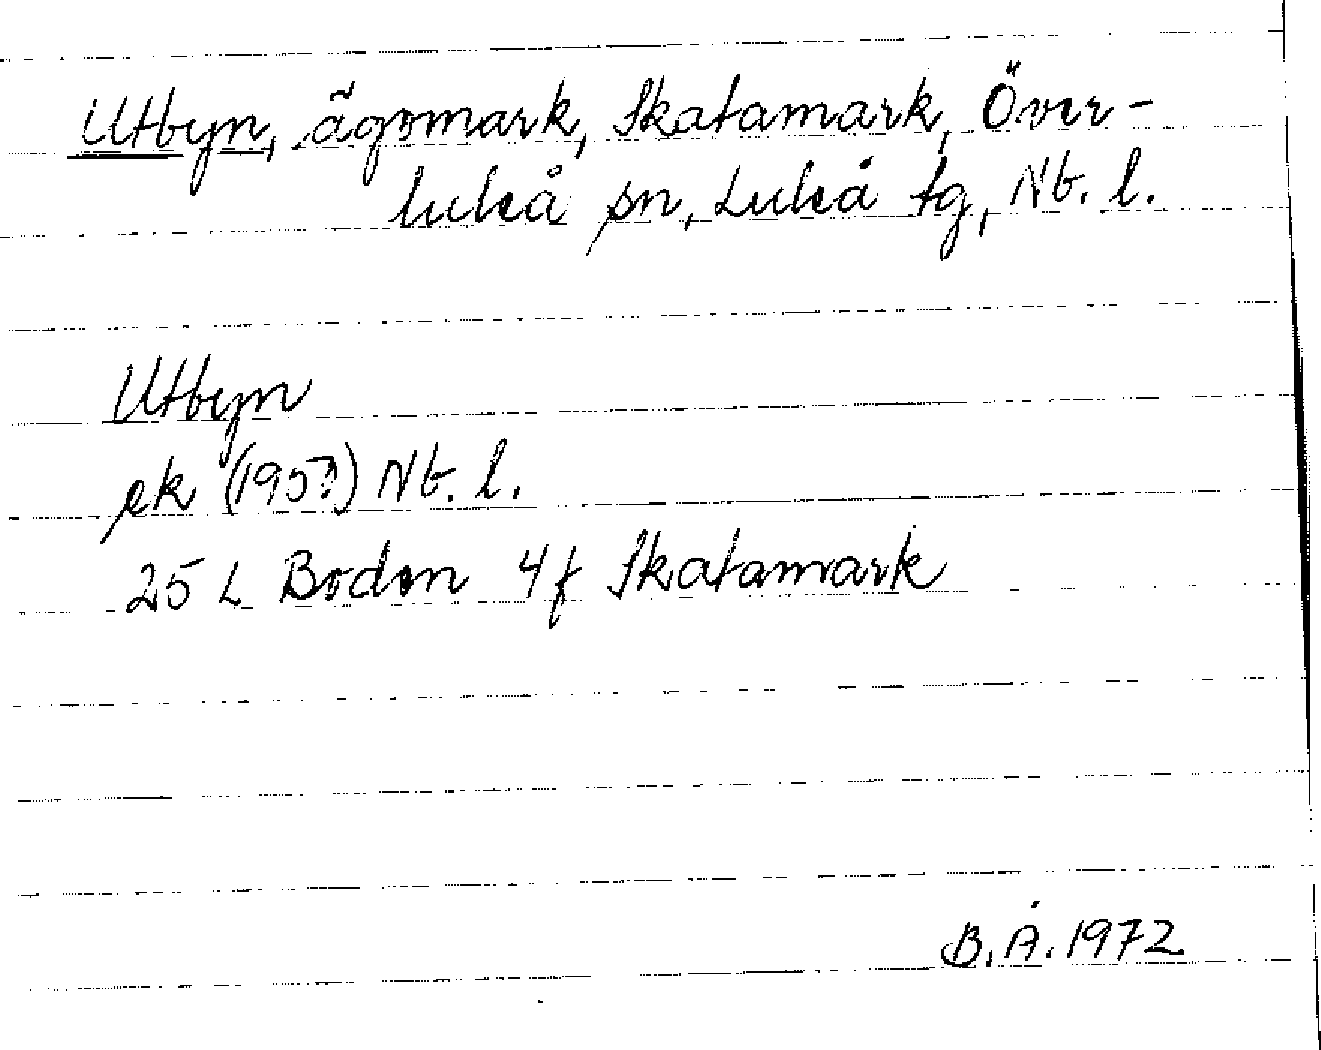 Utbyn, ägomark, Skatamark, Över-
luleå sn, Luleå tg, Nb. l.
Utbyn
ek (1953) Nb. l.
25 L Boden 4f Skatamark
B. Å. 1972